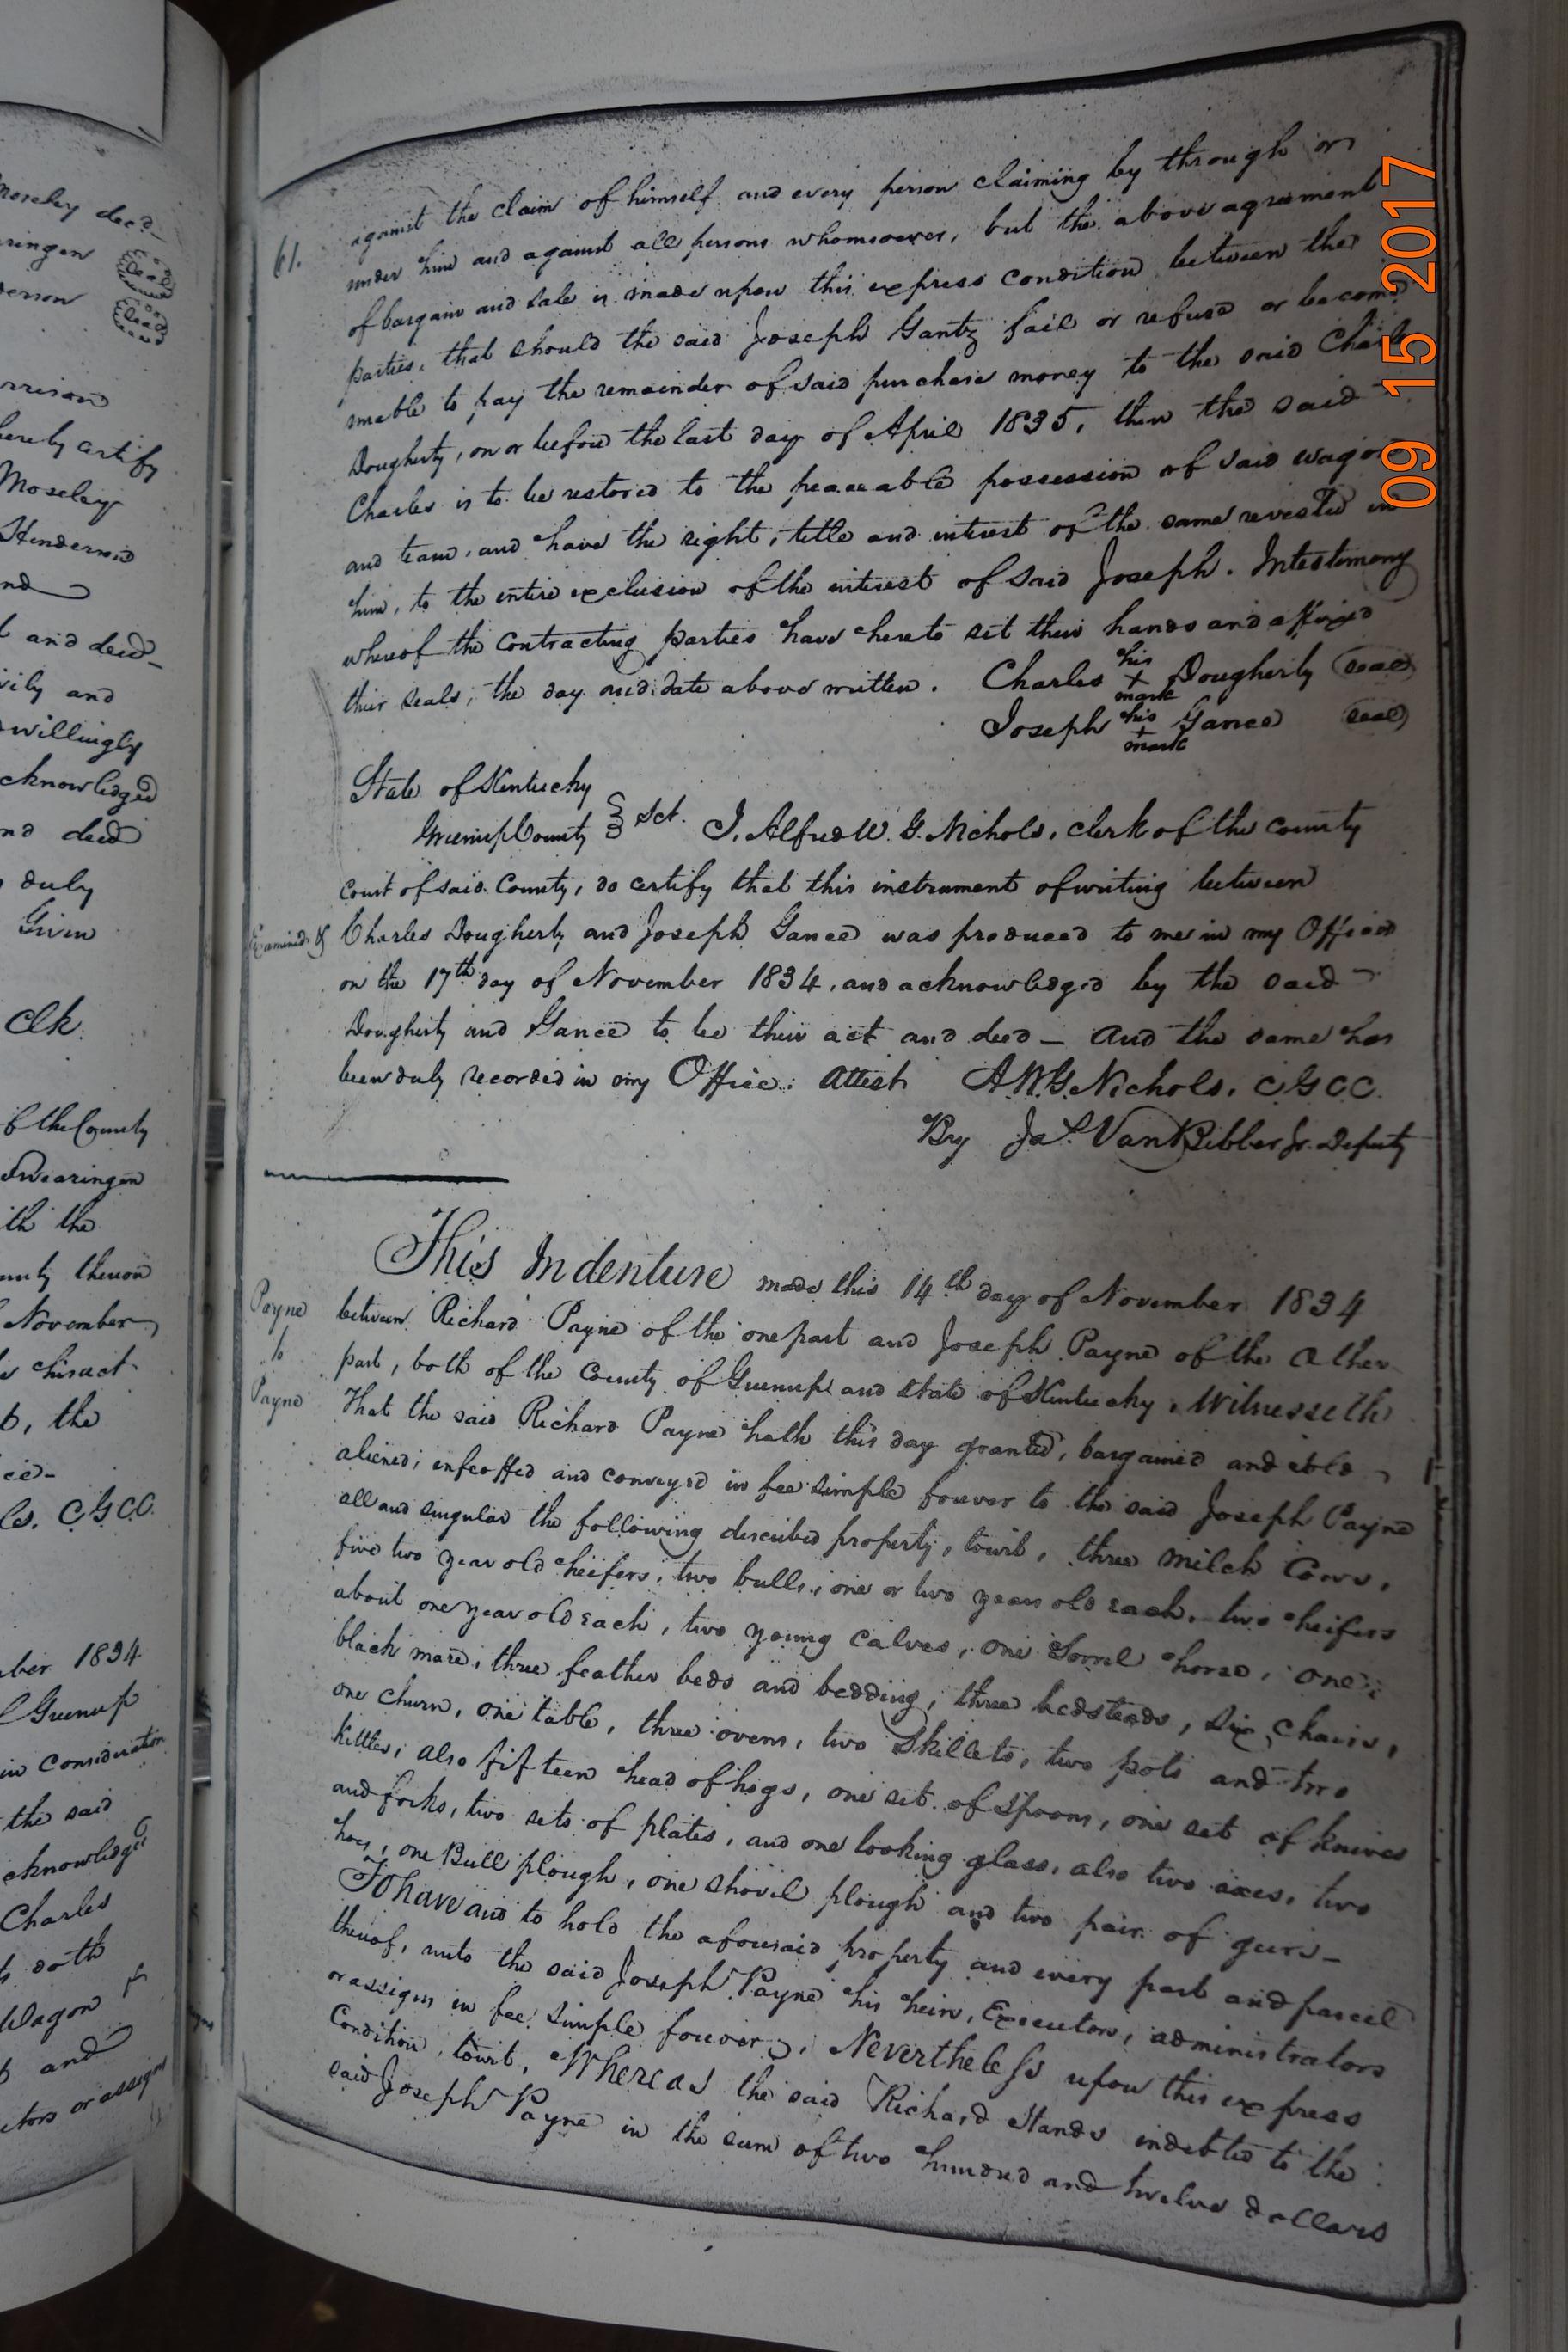 Moseley decd_
ringen
Seal
erson
Seal
rrison
hereby certify
Moseley
Henderson
nd
and deed_
ily and
willingly
cknowledged
nd deed
duly
Given
Clk.
of the County
Swearingen
ith the
unty thereon
November
his act
, the
C.G.C.C.
ber 1834
Greenup
in consideration
the said
cknowledge
Charles
doth
Wagon &
and
utors or assigns
61.
against the claim of himself and every person claiming by through or
under him and against all persons whomsoever, but the above agreement
of bargain and sale is made upon this express condition between the
parties, that should the said Joseph Gantz fail or refuse or become
unable to pay the remainder of said purchase money to the said Charles
Dougherty, on or before the last day of April 1835, then the said
Charles is to be restored to the peaceable possession of said wagon
and team, and have the right, title and interest of the same revested in
him, to the entire exclusion of the interest of said Joseph. In testimony
whereof the contracting parties have hereto set their hands and affixed
their seals, the day and date above written. Charles his X mark Dougherty Seal
Joseph his + mark Gance Seal
State of Kentucky
Greenup County } Sct. I, Alfred W. G. Nichols, clerk of the county
court of said County, do certify that this instrument of writing between
Examined &
Charles Dougherty and Joseph Gance was produced to me in my Office
on the 17th day of November 1834, and acknowledged by the said
Dougherty and Gance to be their act and deed _ And the same has
been duly recorded in my Office. Attest A.W.G. Nichols, C G C C.
By Jas. Van Bibber Jr. Deputy
This Indenture made this 14th day of November 1834
Payne
to
Payne
between Richard Payne of the one part and Joseph Payne of the other
part, both of the County of Greenup and State of Kentucky, Witnesseth
That the said Richard Payne hath this day granted, bargained and sold
aliened, infeoffed and conveyed in fee simple forever to the said Joseph Payne
all and singular the following described property, towit, three milch Cows,
five two year old heifers, two bulls, one or two years old each, two heifers
about one year old each, two young calves, one sorrel horse, one
black mare, three feather beds and bedding, three bedsteads, six chairs,
one churn, one table, three ovens, two skillets, two pots and two
kittles, also fifteen head of hogs, one set of spoons, one set of knives
and forks, two sets of plates, and one looking glass, also two axes, two
hoes, one Bull plough, one shovil plough and two pair of geirs _
To have and to hold the aforesaid property and every part and parcel
thereof, unto the said Joseph Payne his heirs, Executors, administrators
or assigns in fee simple forever, Nevertheless upon this express
Condition, towit, Whereas the said Richard Stands indebted to the
said Joseph Payne in the sum of two hundred and twelve dollars
09 15 2017